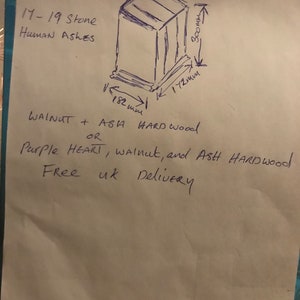 17-19 Stone
Human Ashes
300mm
182mm
172mm
WALNUT + ASH HARDWOOD
OR
Purple HEART, WALNUT, and ASH HARDWOOD
Free UK Delivery